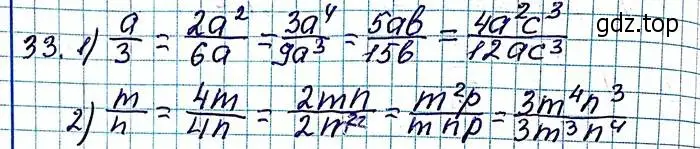 gdz.top
33. 1) a/3 = 2a²/6a = 3a⁴/9a³ = 5ab/15b = 4a²c³/12ac³
2) m/n = 4m/4n = 2mn/2n² = m²p/mnp = 3m⁴n³/3m³n⁴